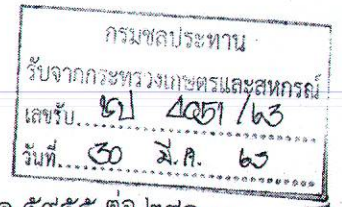 กรมชลประทาน
รับจากกระทรวงเกษตรและสหกรณ์
เลขรับ...... 4051 /63
วันที่.... 30 มี.ค. 63
ต่อ